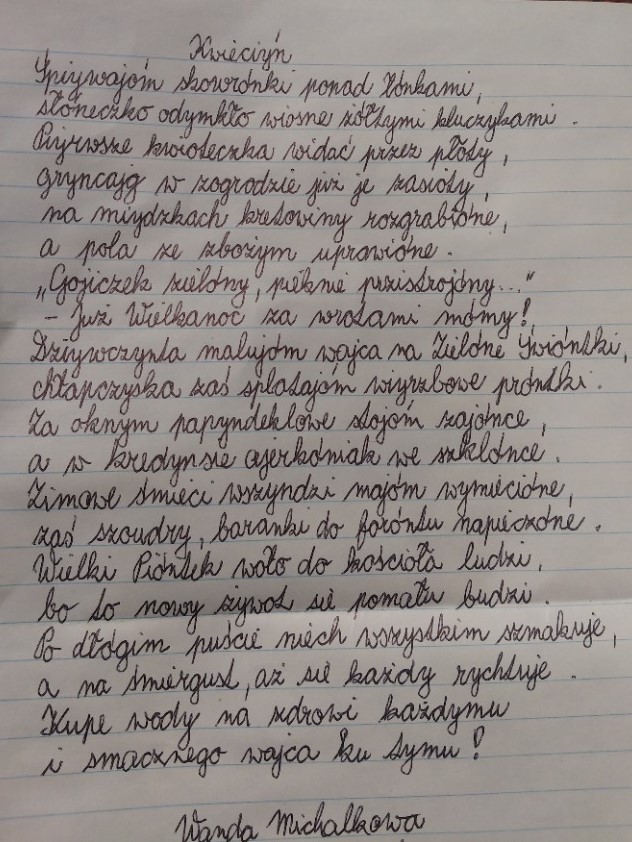 Kwieciyń
Śpiywajóm skowrónki ponad łónkami,
słoneczko odymkło wiosne żółtymi kluczykami.
Piyrwsze kwioteczka widać przez płoty,
gryncajg w zogrodzie już je zasioty,
na miydzkach kretowiny rozgrabióne,
a pola ze zbożym uprawióne.
„Gojiczek zielóny, piéknie przistrojóny..."
– Już Wielkanoc za wrotami mómy!
Dziywczynta malujóm wajca na Zielóne Świóntki,
chłapczyska zaś splatajóm wiyrzbowe próntki.
Za oknym papyndeklowe stojóm zajónce,
a w kredynsie ajerkóniak we szklónce.
Zimowe śmieci wszyndzi majóm wymiecióne,
zaś szoudry, baranki do foróntu napieczóne.
Wielki Pióntek woło do kościoła ludzi,
bo to nowy żywot sie pomału budzi.
Po dłógim puście niech wszystkim szmakuje,
a na śmiergust, aż sie każdy rychtuje.
Kupe wody na zdrowi każdymu
i smacznego wajca ku tymu!
Wanda Michalkowa